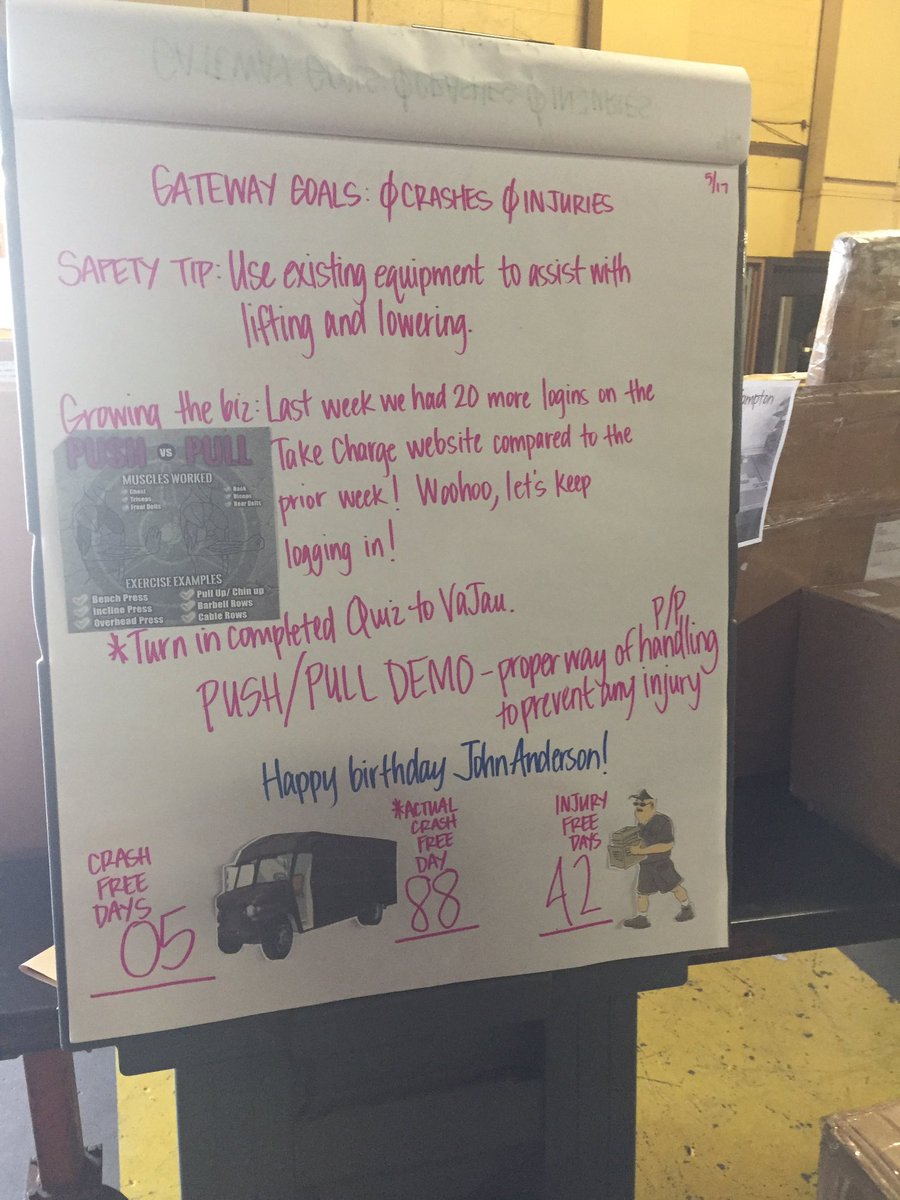 GATEWAY GOALS: 0 CRASHES 0 INJURIES
5/17
SAFETY TIP: Use existing equipment to assist with
lifting and lowering.
Growing the biz: Last week we had 20 more logins on the
Take Charge website compared to the
prior week! Woohoo, let's keep
logging in!
PUSH VS PULL
MUSCLES WORKED
Chest
Triceps
Front Delts
Back
Biceps
Rear Delts
EXERCISE EXAMPLES
Bench Press
Incline Press
Overhead Press
Pull Up/ Chin up
Barbell Rows
Cable Rows
*Turn in completed Quiz to VaJau.
P/P
PUSH/PULL DEMO - proper way of handling
to prevent any injury
Happy birthday John Anderson!
CRASH
FREE
DAYS
05
*ACTUAL
CRASH
FREE
DAY
88
INJURY
FREE
DAYS
42